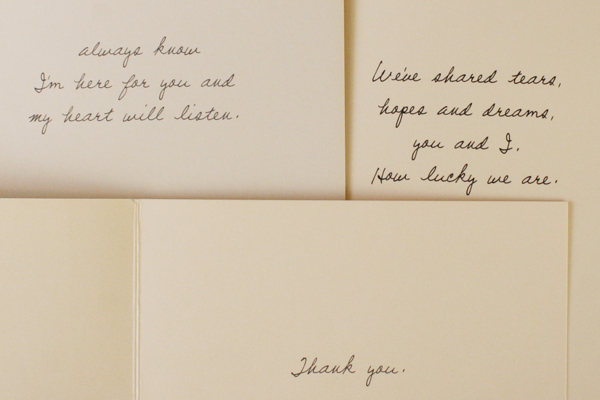 always know
I'm here for you and
my heart will listen.
We've shared tears,
hopes and dreams,
you and I.
How lucky we are.
Thank you.